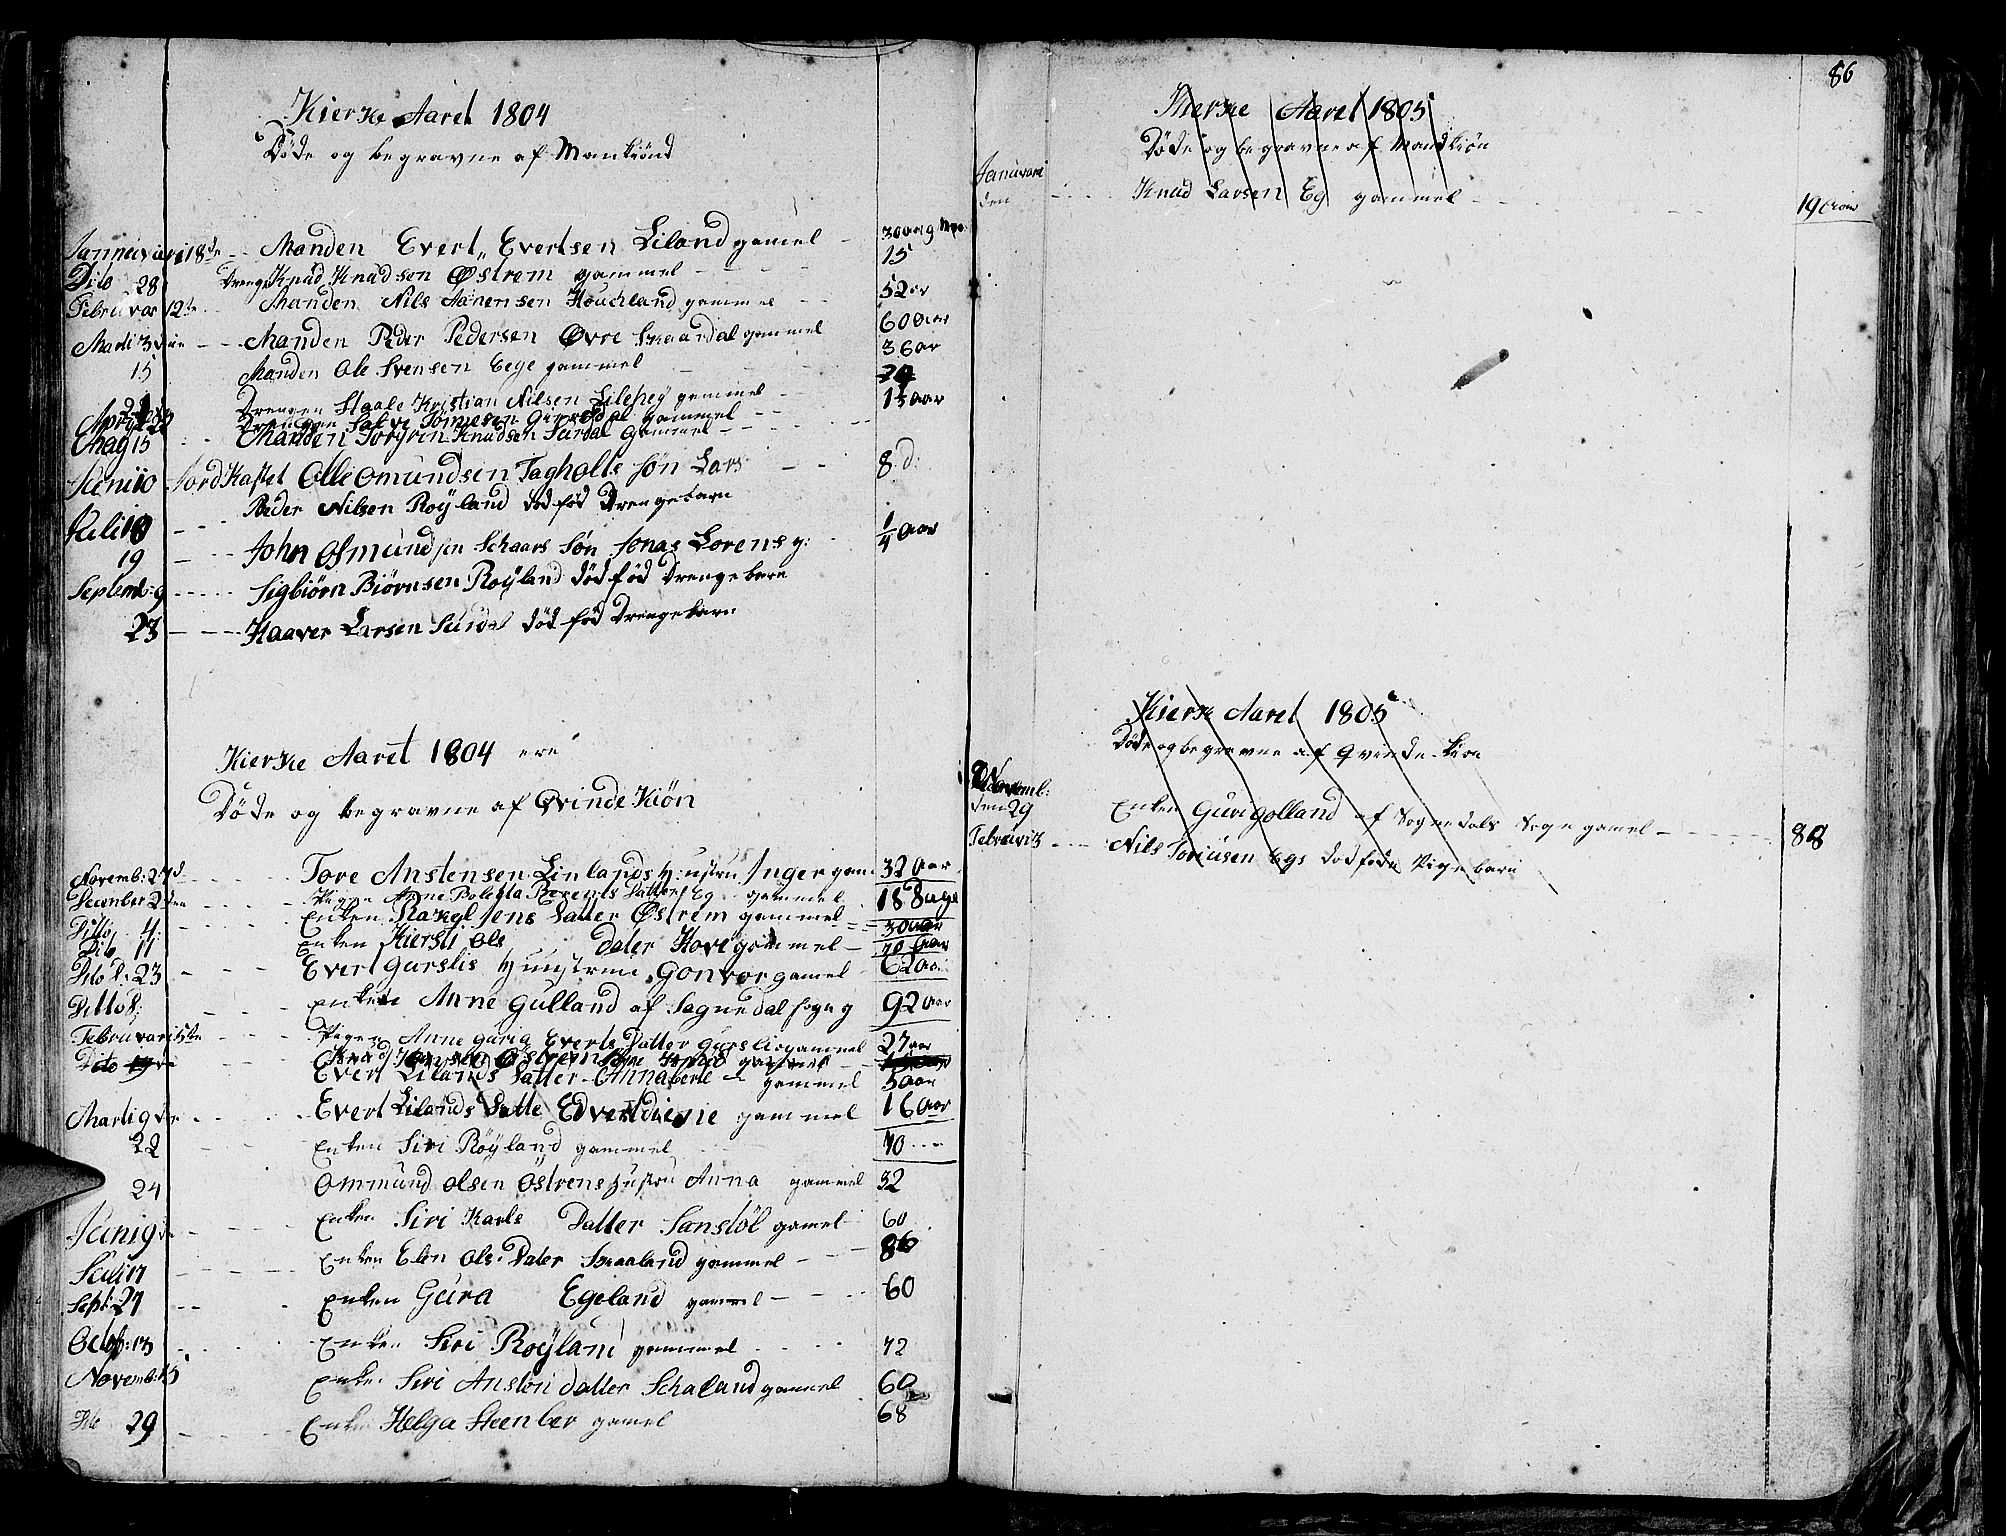 Kierke Aaret 1804
Døde og begravne af Mankiønd
Jannuvari 18de Manden Evert Evertsen Liland gamel 30 aar 9 Mnr.
Dito 28 Dreng Knud Knudson Østrem gammel 15
Februvar 12te Manden Nils Aanensen Houkland gammel 52 ar
Marti 3die Manden Peder Pedersen Øvre Skaardal gammel 60 aar
15 Manden Ole Svensen Eege gammel 36 ar
21 Drengen Staale Kristian Nilsen Lilehey gammel
April Drengen Salve Tønnesen gammel 1 aar
May 15 Manden Torgrin Knudsen Surdal gammel
Juni 10 Jord Kastet Olle Omundsen Tagholts søn Lars 8 d:
Peder Nilsen Røyland død fød Drengebarn
Juli 10
19 John Osmundsen Schaars Søn Jonas Lorens g: 1/4 aar
Septemb: 9 Sigbiørn Biørnsen Røyland død fød Drenge barn
23 Haaver Larsen Surdal død fød Drengebarn
Kierke Aaret 1804 ere
Døde og begravne af Qvinde Kiøn
Novemb: 27d Tore Anstensen Linlands Hustru Inger gam 32 aar
December 2den Pigen Anne Bolette Berents Datter Eg gammel 18 Uge
Ditto 4 Enken Rakel Jens Datter Østrem gammel 30 aar
Dito 11 Enken Kiersti Ols Dater Hove gammel 70 aar
Dito d: 23 Evert Gurslis Huustrue Gonvor gamel 62 aar
Ditto d: Enken Anne Gulland af Sognedal sogn g 92 aar
Februvari 5te Pigen Anne Guria Everts Datter Gursli gammel 27 aar
Dito Evert Lilands Datter Annaberte gammel 5 aar
Marti 9de Evert Lilands Datte Edvertdiene gammel 16 aar
22 Enken Siri Røyland gammel 70
24 Ommund Olsen Østrems Hustru Anna gammel 32
Juni 9de Enken Siri Karls Datter Sanstøl gamel 60
Juli 17 Enken Elen Ols Dater Skaaland gammel 86
Sept: 27 Enken Gura Egeland gammel 60
Octob: 13 Enken Siri Røyland gammel 72
Novemb: 15 Enken Siri Ansten datter Schaland gammel 60
Dito 29 Enken Helga Steenber gamel 68
86
Kierke Aaret 1805
Døde og begravne af Mandkiøn
Januvari
den Knud Larsen Eg gammel 19 aar
Kierke Aaret 1805
Døde og begravne af Qvinde kiøn
den 29 Enken Guri Golland af Sognedals Sogn gamel 88
Februvari Nils Toriusen Egs dødføde Pige barn